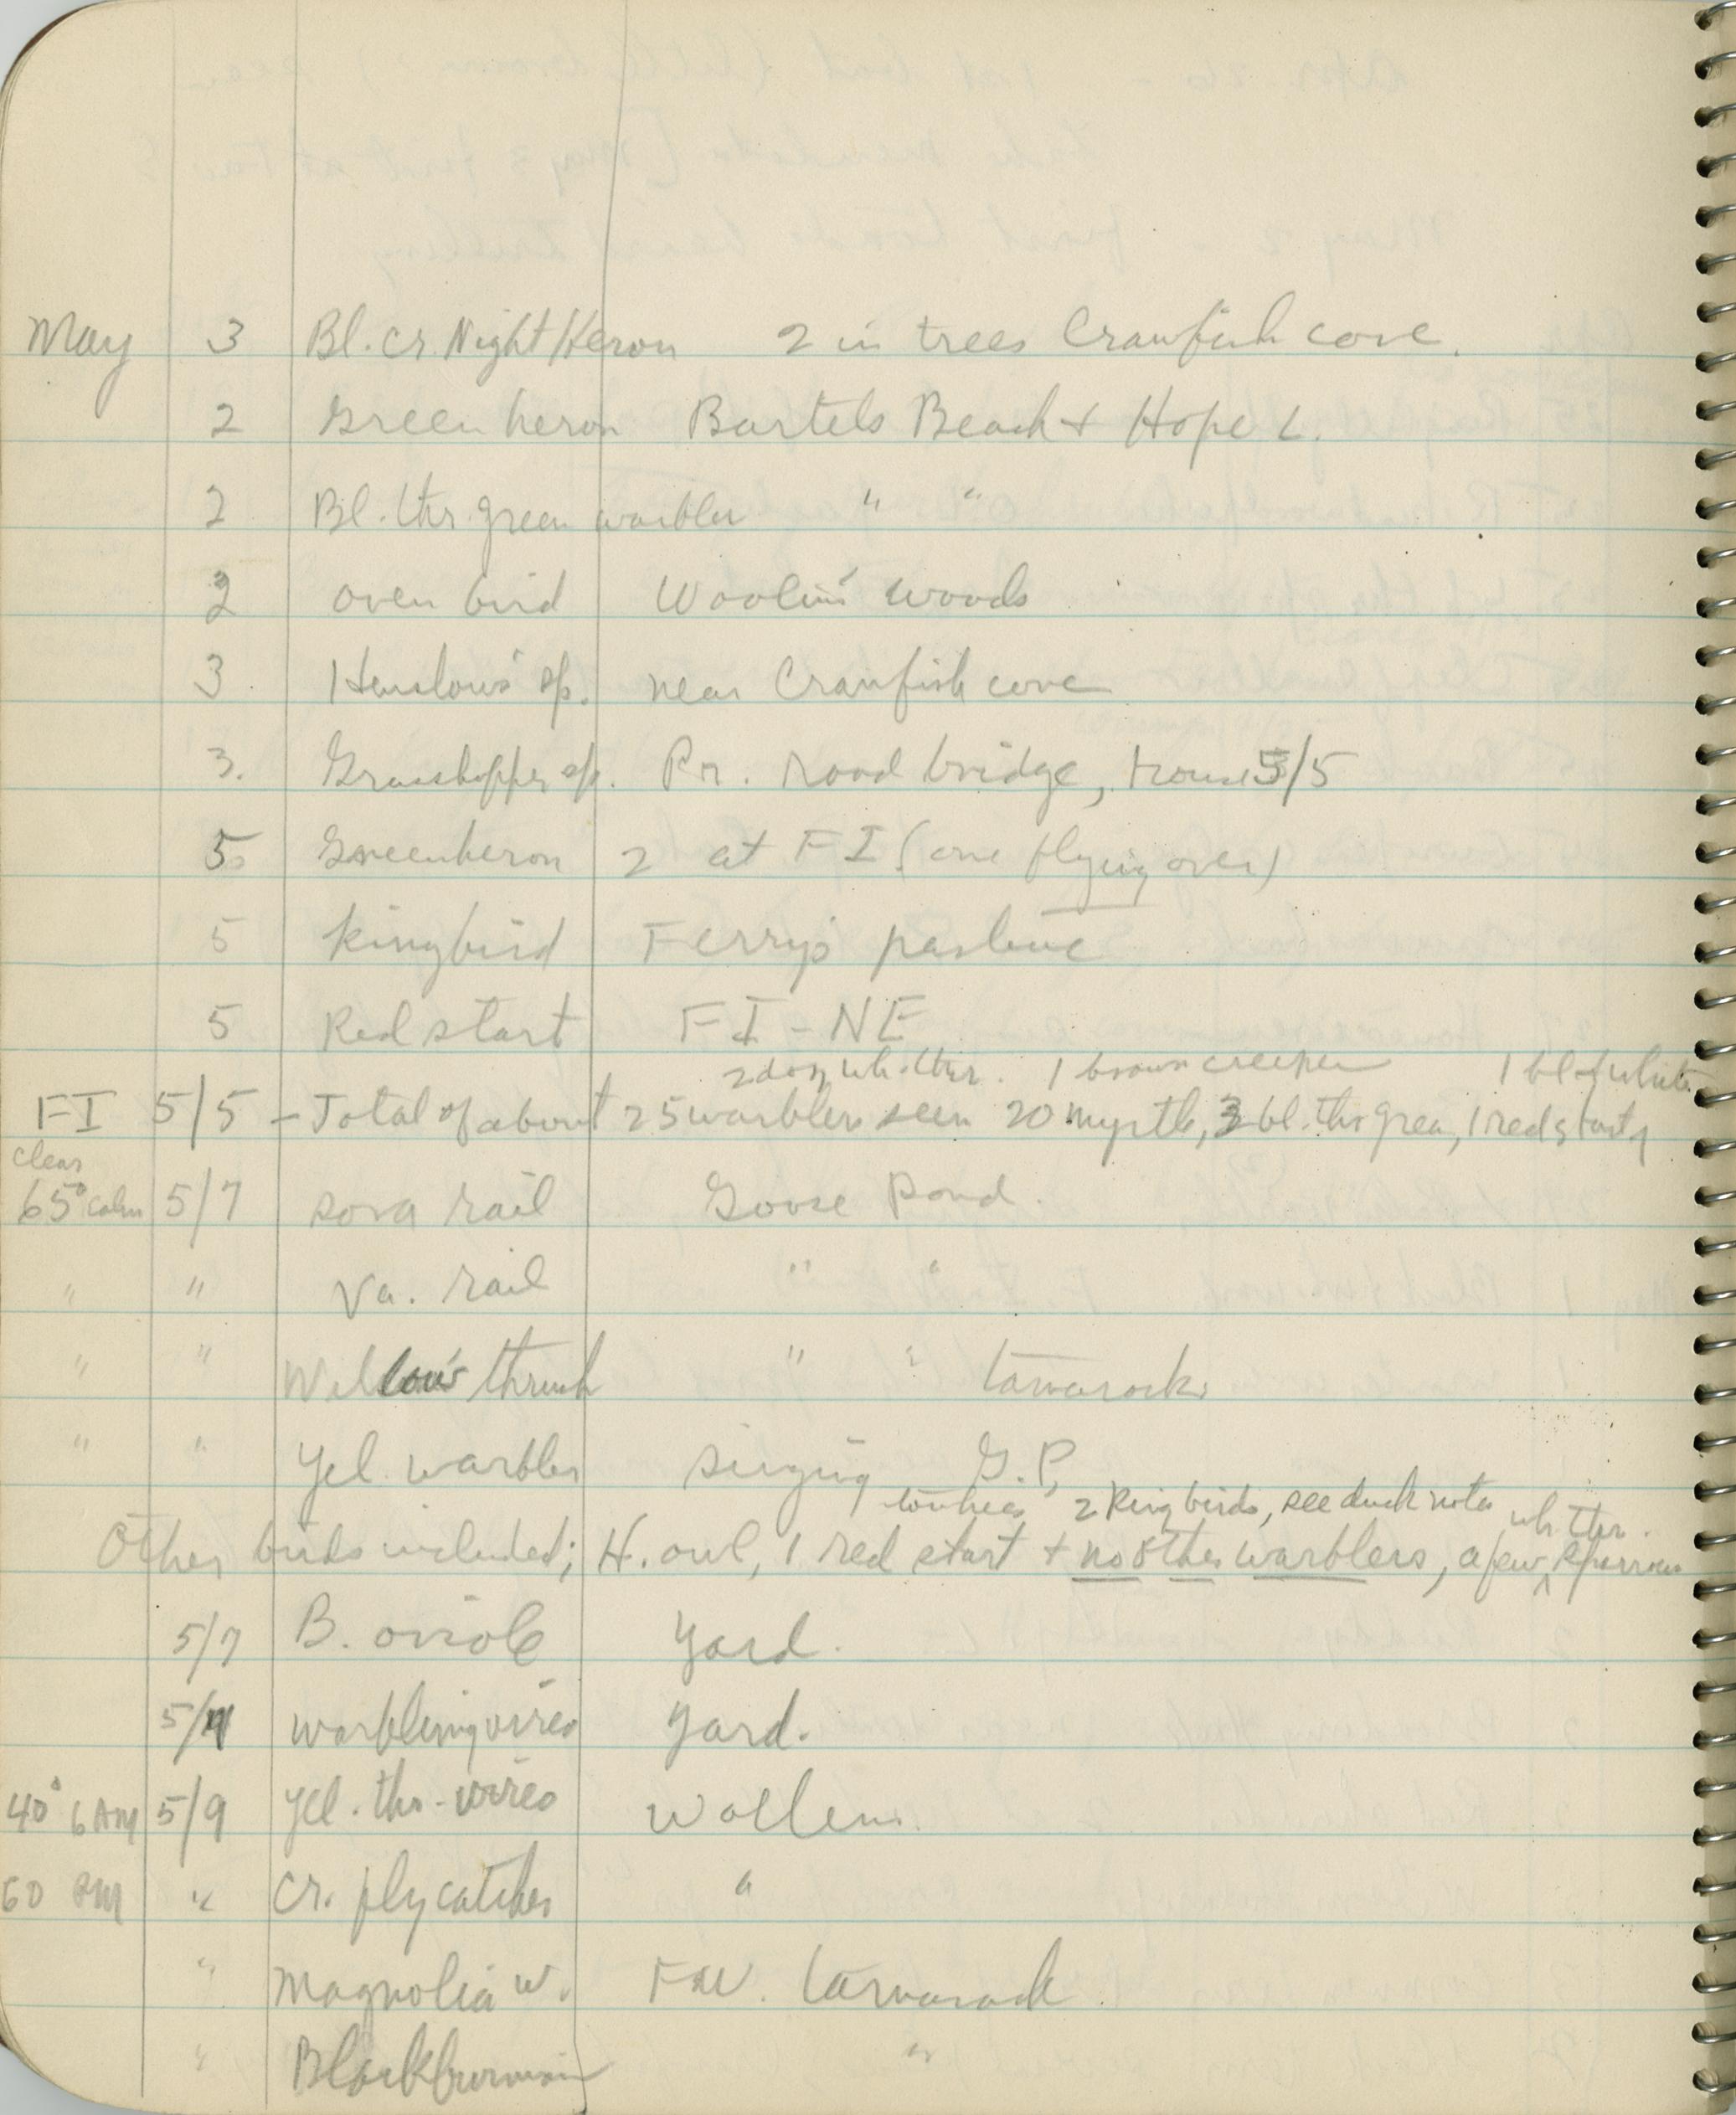 May 3 Bl. cr. Night Heron 2 in trees Crawfish cove.
2 Green heron Bartels Beach + Hope L.
2 Bl. thr. green warbler " "
2 oven bird woods
3. Henslow's sp. near Crawfish cove
3. Grasshopper sp. Pr. road bridge, 5/5
5 Green heron 2 at FI (one flying over)
5 Kingbird Ferry's pasture
5 Redstart FI - NE
2 doz wh. thr. 1 brown creeper 1 bl + white
FI 5/5 - Total of about 25 warblers seen 20 myrtle, 3 bl. thr green, 1 redstart,
clear
65° calm 5/7 sora rail Goose Pond.
" " Va. rail " "
" " Willow's thrush " " tamarack
" " Yel. warbler singing G.P.
towhees 2 Kingbirds, see duck notes wh. thr.
Other birds included; H. owl, 1 red start + no other warblers, a few ^ sparrows
5/7 B. oriole Yard.
5/ warbling vireo Yard.
40° 6 AM 5/9 Yel. thr. vireo
60 PM " Cr. flycatcher "
" Magnolia w. tamarack
" Blackburnian "